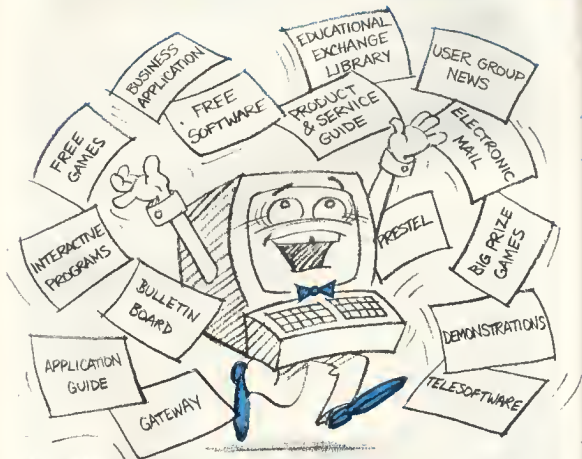 BUSINESS
APPLICATION
EDUCATIONAL
EXCHANGE
LIBRARY
USER GROUP
NEWS
FREE
SOFTWARE
PRODUCT
& SERVICE
GUIDE
ELECTRONIC
MAIL
FREE
GAMES
PRESTEL
BIG PRIZE
GAMES
INTERACTIVE
PROGRAMS
BULLETIN
BOARD
DEMONSTRATIONS
APPLICATION
GUIDE
GATEWAY
TELESOFTWARE